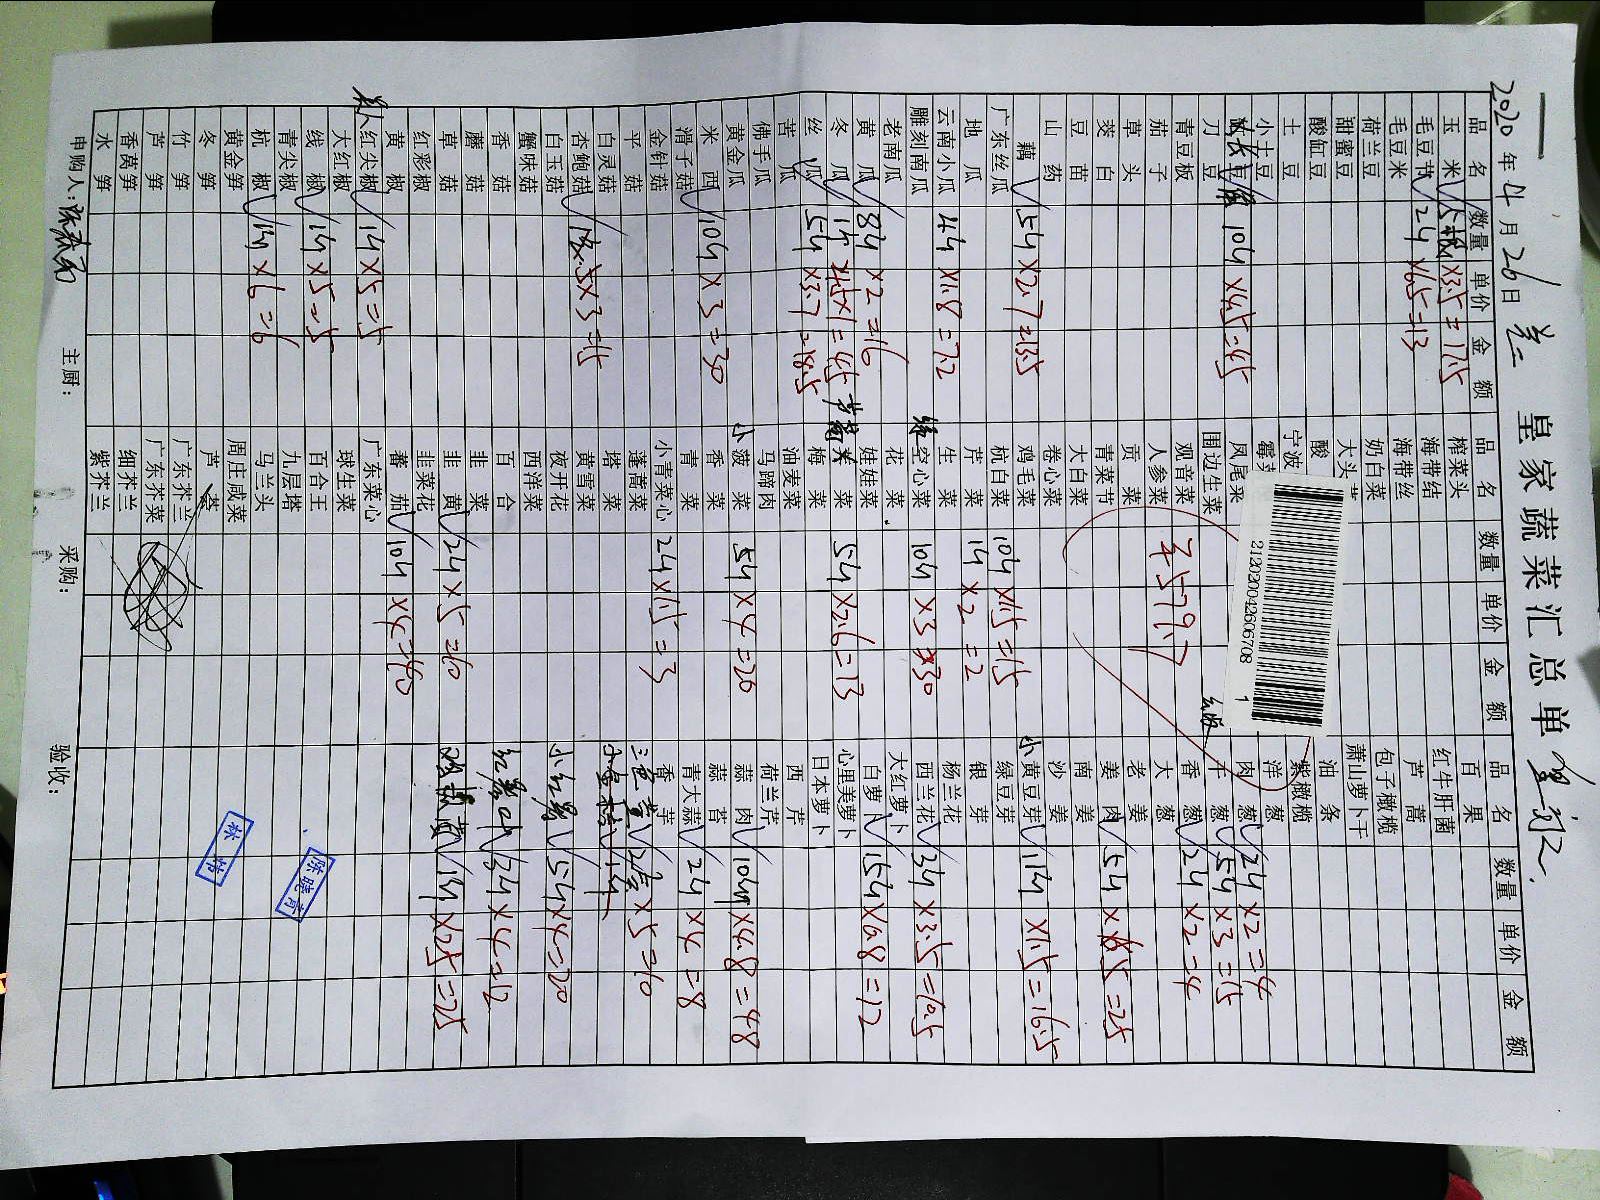 皇家蔬菜汇总单
2020年4月26日
品名 数量 单价 金额
玉米 ×3.5=17.5
毛豆节 2斤 ×6.5=13
毛豆米
荷兰豆
甜蜜豆
酸缸豆
土豆
小土豆
长豆 10斤 ×4.5=45
刀豆
青豆板
茄子
草头
茭白
豆苗
山药
藕 5斤 ×2.7=13.5
广东丝瓜
地瓜
云南小瓜 4斤 ×1.8=7.2
雕刻南瓜
老南瓜
黄瓜 8斤 ×2=16
冬瓜 4.5×1=4.5
丝瓜 5斤 ×3.7=18.5
苦瓜
佛手瓜
黄金瓜
西米 10斤 ×3=30
滑子菇
金针菇
平菇
白灵菇
杏鲍菇 5×3=15
白玉菇
蟹味菇
香菇
蘑菇
草菇
红彩椒
黄椒
美人红尖椒 1斤 ×5=5
大红椒
线椒 1斤 ×5=5
青尖椒
杭椒 1斤 ×6=6
黄金笋
冬笋
竹笋
芦笋
香莴笋
水笋
品名 数量 单价 金额
榨菜头
海带结
海带丝
奶白菜
大头
酸
宁波
霉
凤尾菜
围边生菜
观音菜
人参菜
贡菜
青菜节
大白菜
卷心菜
鸡毛菜
杭白菜 10斤 ×1.5=15
芹菜 1斤 ×2=2
生菜
空心菜 10斤 ×3=30
花菜
娃娃菜
菜 5斤 ×2.6=13
梅菜
油麦菜
马蹄肉
小菠菜 5斤 ×4=20
香菜
青菜
小青菜心 2斤 ×1.5=3
蓬蒿菜
塔菜
黄雪菜
夜开花
西洋菜
百合
韭菜
韭黄 2斤 ×5=10
韭菜花
蕃茄 10斤 ×4=40
广东菜心
球生菜
百合王
九层塔
马兰头
周庄咸菜
芦荟
广东芥兰
广东芥菜
细芥兰
紫芥兰
¥579.7
212020042606708 1
品名 数量 单价 金额
百果
红牛肝菌
芦蒿
包子橄榄
萧山萝卜干
油条
紫橄榄
洋葱
肉葱 2斤 ×2=4
牛葱 5斤 ×3=15
香葱 2斤 ×2=4
大葱
老姜
姜肉 5斤 ×5=25
南姜
沙姜
小黄豆芽 11斤 ×1.5=16.5
绿豆芽
银芽
杨兰花
西兰花 3斤 ×3.5=10.5
大红萝卜
白萝卜 15斤 ×0.8=12
心里美萝卜
日本萝卜
西芹
荷兰芹
蒜肉 10斤 ×4.8=48
蒜苔
青大蒜 2斤 ×4=8
香芋
三色堇 2盒 ×5=10
小红薯 5斤 ×4=20
红薯叶 3斤 ×4=12
鸡枞菌 1斤 ×25=25
申购人：
主厨：
采购：
验收：